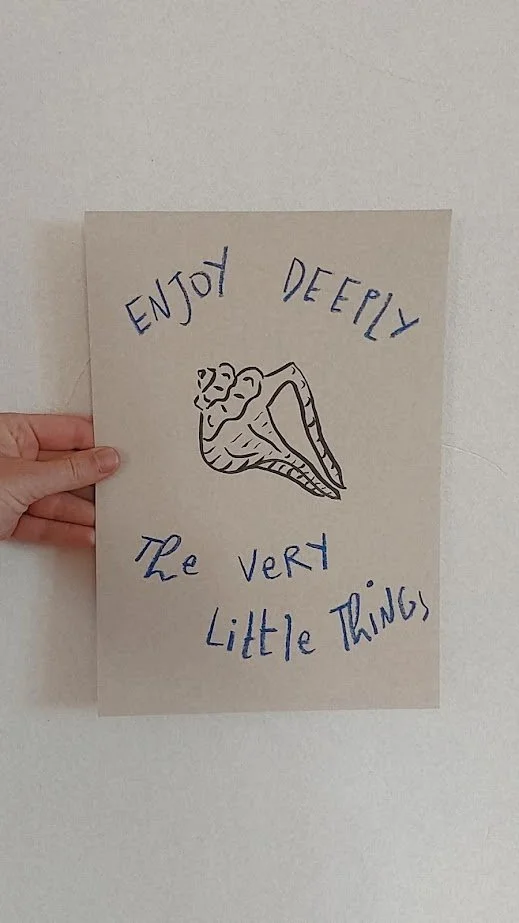 ENJOY DEEPLY
The VeRY
Little THiNGS